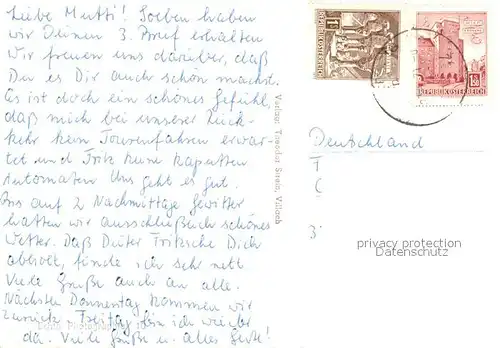 Liebe Mutti! Soeben haben
wir Deinen 3. Brief erhalten
Wir freuen uns darüber, daß
Du es Dir auch schön machst.
Es ist doch ein schönes Gefühl,
daß mich bei unserer Rück-
kehr kein Tourenfahren erwar-
tet und Fritz keine kaputten
Automaten Uns geht es gut.
Bis auf 2 Nachmittage Gewitter
hatten wir ausschließlich schönes
Wetter. Daß Dieter Fritzsche Dich
abholt, finde ich sehr nett
Viele Grüße auch an alle.
Nächsten Donnerstag kommen wir
zurück. Freitag bin ich wieder
da. Viele Grüße u. alles Gute!
Echte Photographie
Verlag Theodor Streit, Villach
REPUBLIK ÖSTERREICH
REPUBLIK ÖSTERREICH
Deutschland
privacy protection
Datenschutz